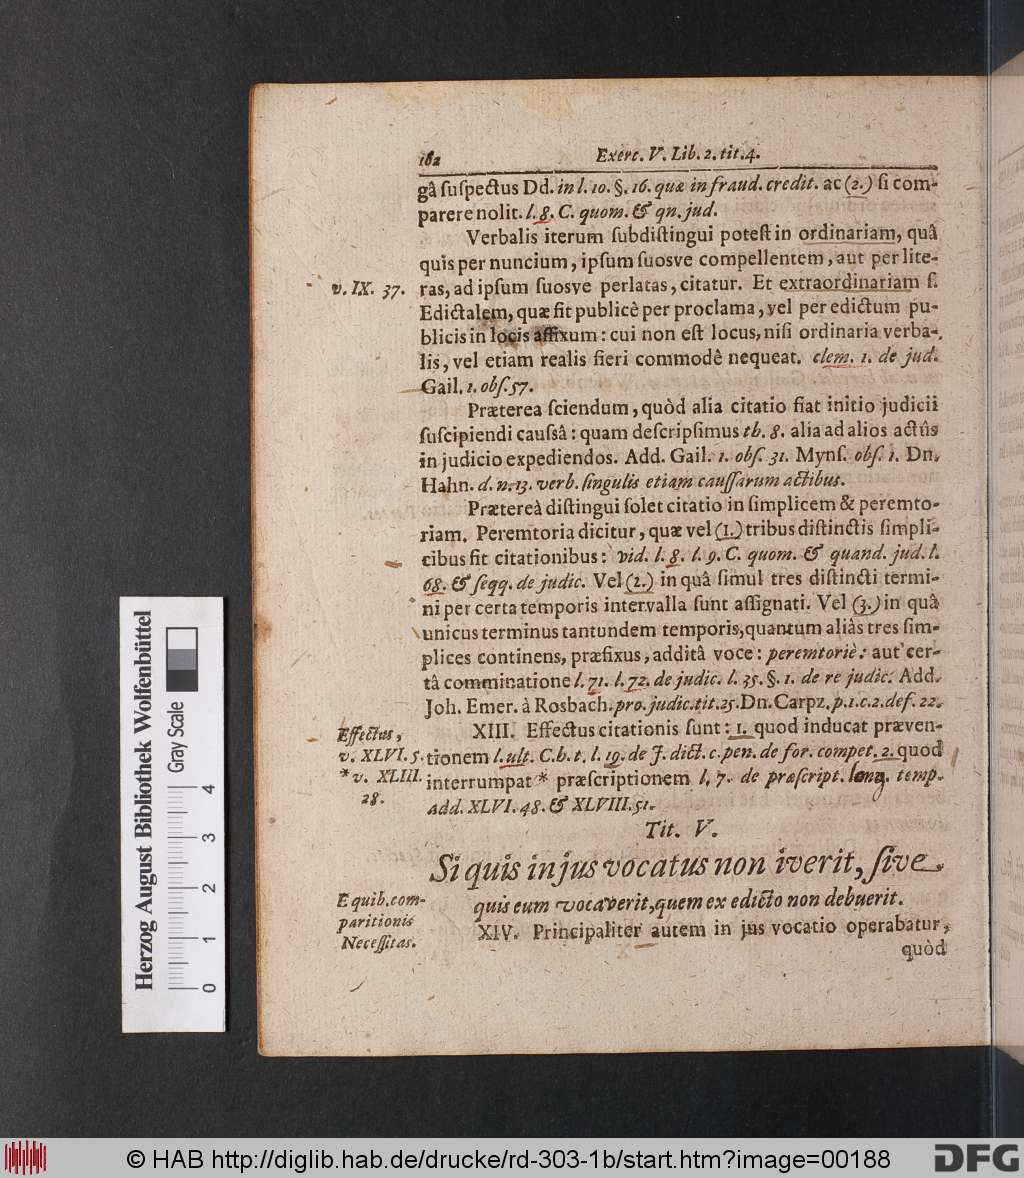 182 Exerc. V. Lib. 2. tit. 4.
gâ ſuſpectus Dd. in l. 10. §. 16. quæ in fraud. credit. ac (2.) ſi com-
parere nolit. l. 8. C. quom. & qn. jud.
Verbalis iterum ſubdiſtingui poteſt in ordinariam, quâ
quis per nuncium, ipſum ſuosve compellentem, aut per lite-
v. IX. 37. ras, ad ipſum ſuosve perlatas, citatur. Et extraordinariam ſ.
Edictalem, quæ fit publicè per proclama, vel per edictum pu-
blicis in locis affixum: cui non eſt locus, niſi ordinaria verba-
lis, vel etiam realis fieri commodê nequeat. clem. 1. de jud.
Gail. 1. obſ. 57.
Præterea ſciendum, quòd alia citatio fiat initio judicii
ſuſcipiendi cauſsâ: quam deſcripſimus th. 8. alia ad alios actûs
in judicio expediendos. Add. Gail. 1. obſ. 31. Mynſ. obſ. 1. Dn.
Hahn. d. n. 13. verb. ſingulis etiam cauſſarum actibus.
Prætereà diſtingui ſolet citatio in ſimplicem & peremto-
riam. Peremtoria dicitur, quæ vel (1.) tribus diſtinctis ſimpli-
cibus fit citationibus: vid. l. 8. l. 9. C. quom. & quand. jud. l.
68. & ſeqq. de judic. Vel (2.) in quâ ſimul tres diſtincti termi-
ni per certa temporis intervalla ſunt aſſignati. Vel (3.) in quâ
unicus terminus tantundem temporis, quantum aliàs tres ſim-
plices continens, præfixus, additâ voce: peremtoriè: aut cer-
tâ comminatione l. 71. l. 72. de judic. l. 35. §. 1. de re judic. Add.
Joh. Emer. à Rosbach. pro. judic. tit. 25. Dn. Carpz. p. 1. c. 2. def. 22.
Effectus, XIII. Effectus citationis ſunt: 1. quod inducat præven-
v. XLVI. 5. tionem l. ult. C. h. t. l. 19. de J. dict. c. pen. de for. compet. 2. quod
* v. XLIII. interrumpat * præſcriptionem l. 7. de præſcript. long. temp.
28. add. XLVI. 48. & XLVIII. 51.
Tit. V.
Si quis in jus vocatus non iverit, ſive
E quib. com- quis eum vocaverit, quem ex edicto non debuerit.
paritionis XIV. Principaliter autem in jus vocatio operabatur,
Neceſſitas.
quòd
Herzog August Bibliothek Wolfenbüttel
Gray Scale
0 1 2 3 4
© HAB http://diglib.hab.de/drucke/rd-303-1b/start.htm?image=00188
DFG